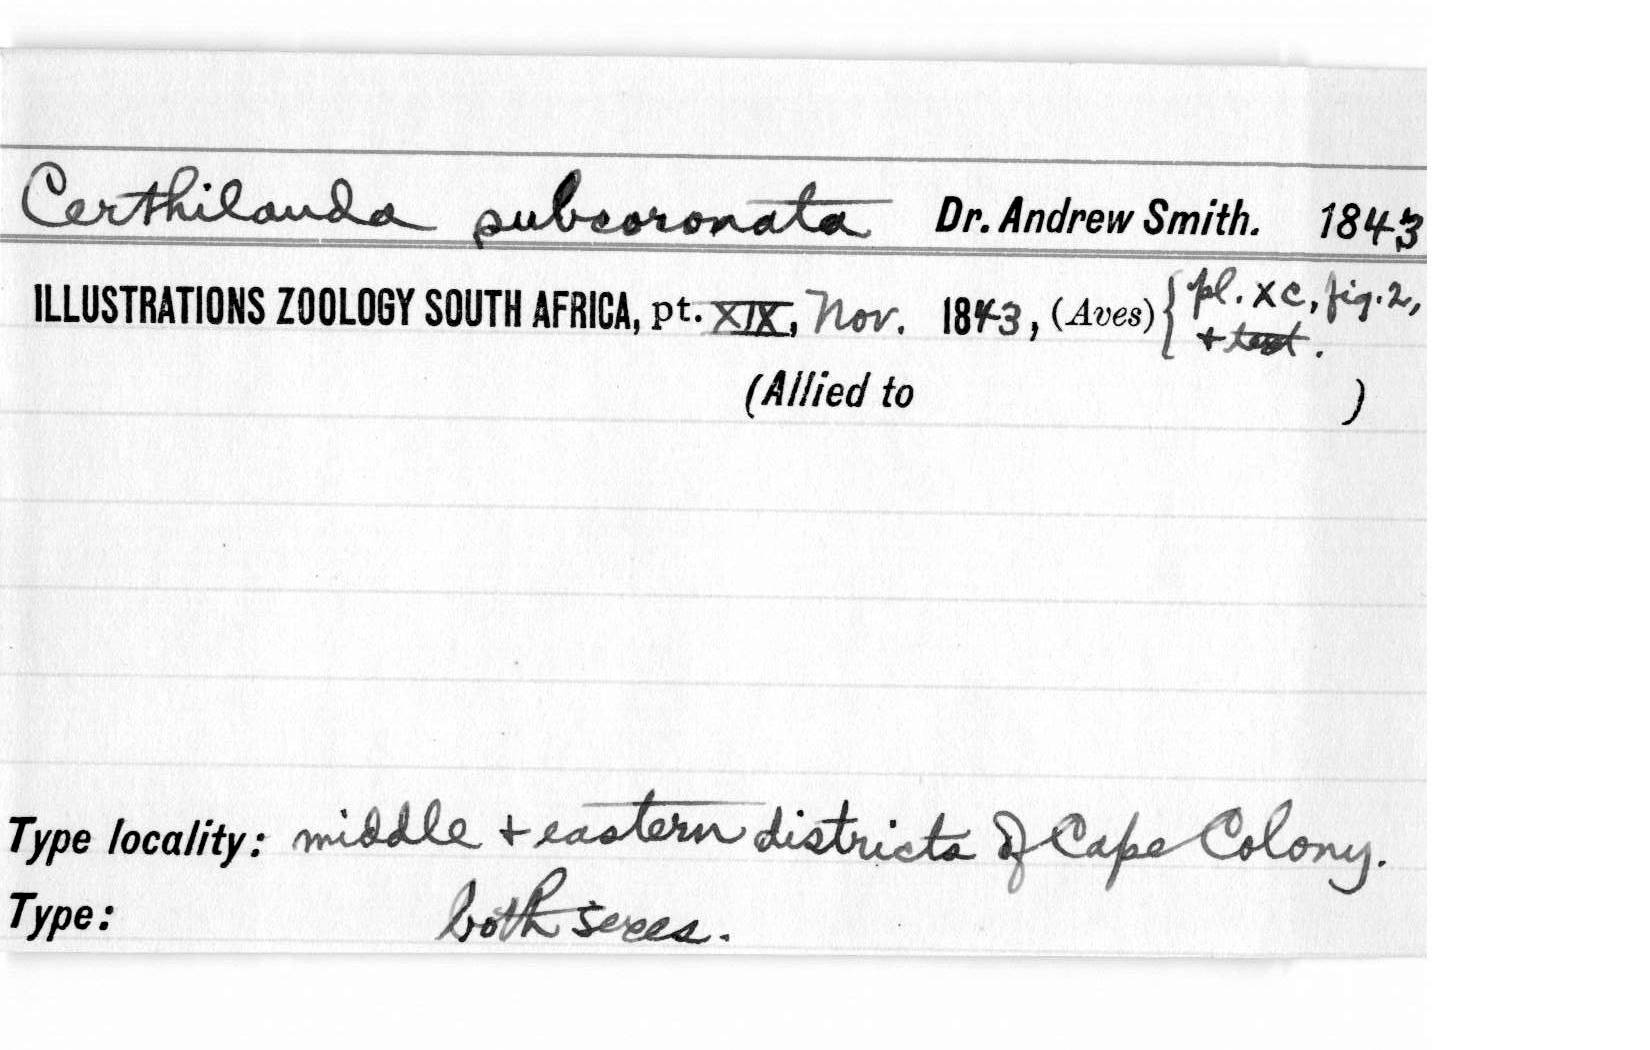 Certhilauda subcoronata Dr. Andrew Smith. 1843
ILLUSTRATIONS ZOOLOGY SOUTH AFRICA, pt. XIX, Nov. 1843, (Aves) { pl. XC, fig. 2,
+ text.
(Allied to )
Type locality: middle + eastern districts of Cape Colony.
Type: both sexes.